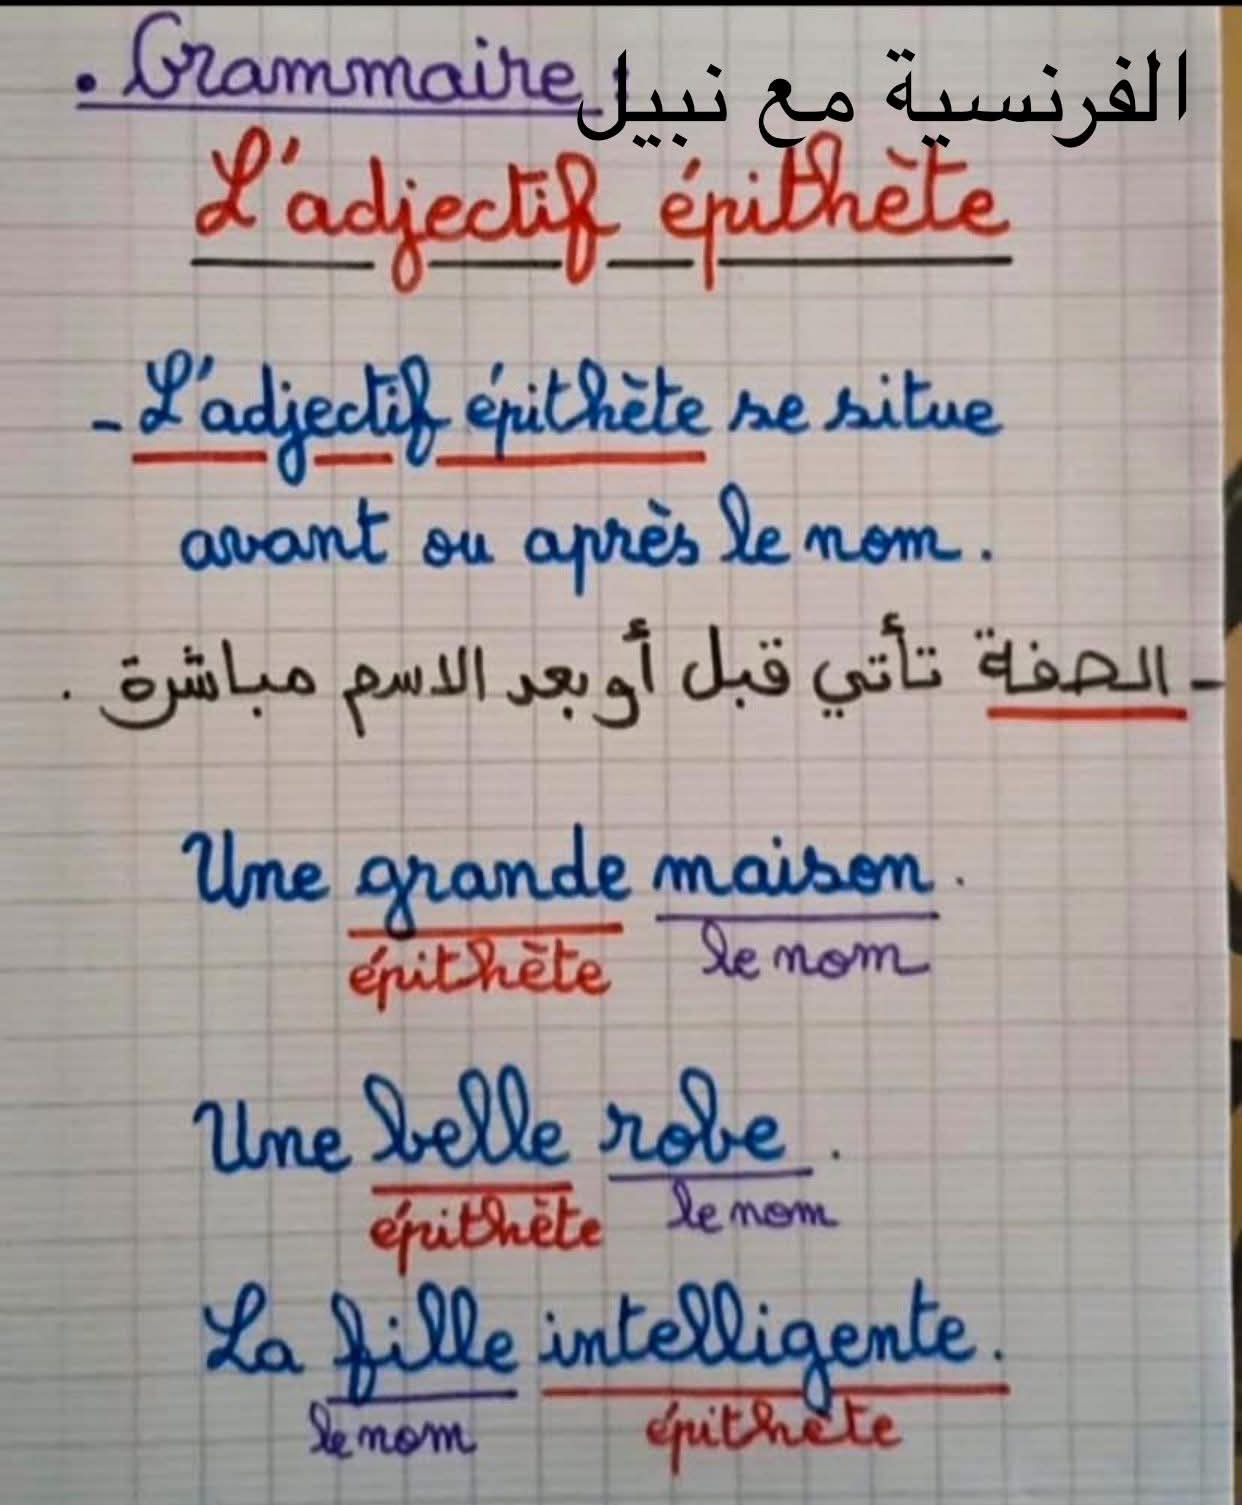 . Grammaire :
الفرنسية مع نبيل
L'adjectif épithète
- L'adjectif épithète se situe
avant ou après le nom.
- الصفة تأتي قبل أو بعد الاسم مباشرة .
Une grande maison.
épithète le nom
Une belle robe.
épithète le nom
La fille intelligente.
le nom épithète